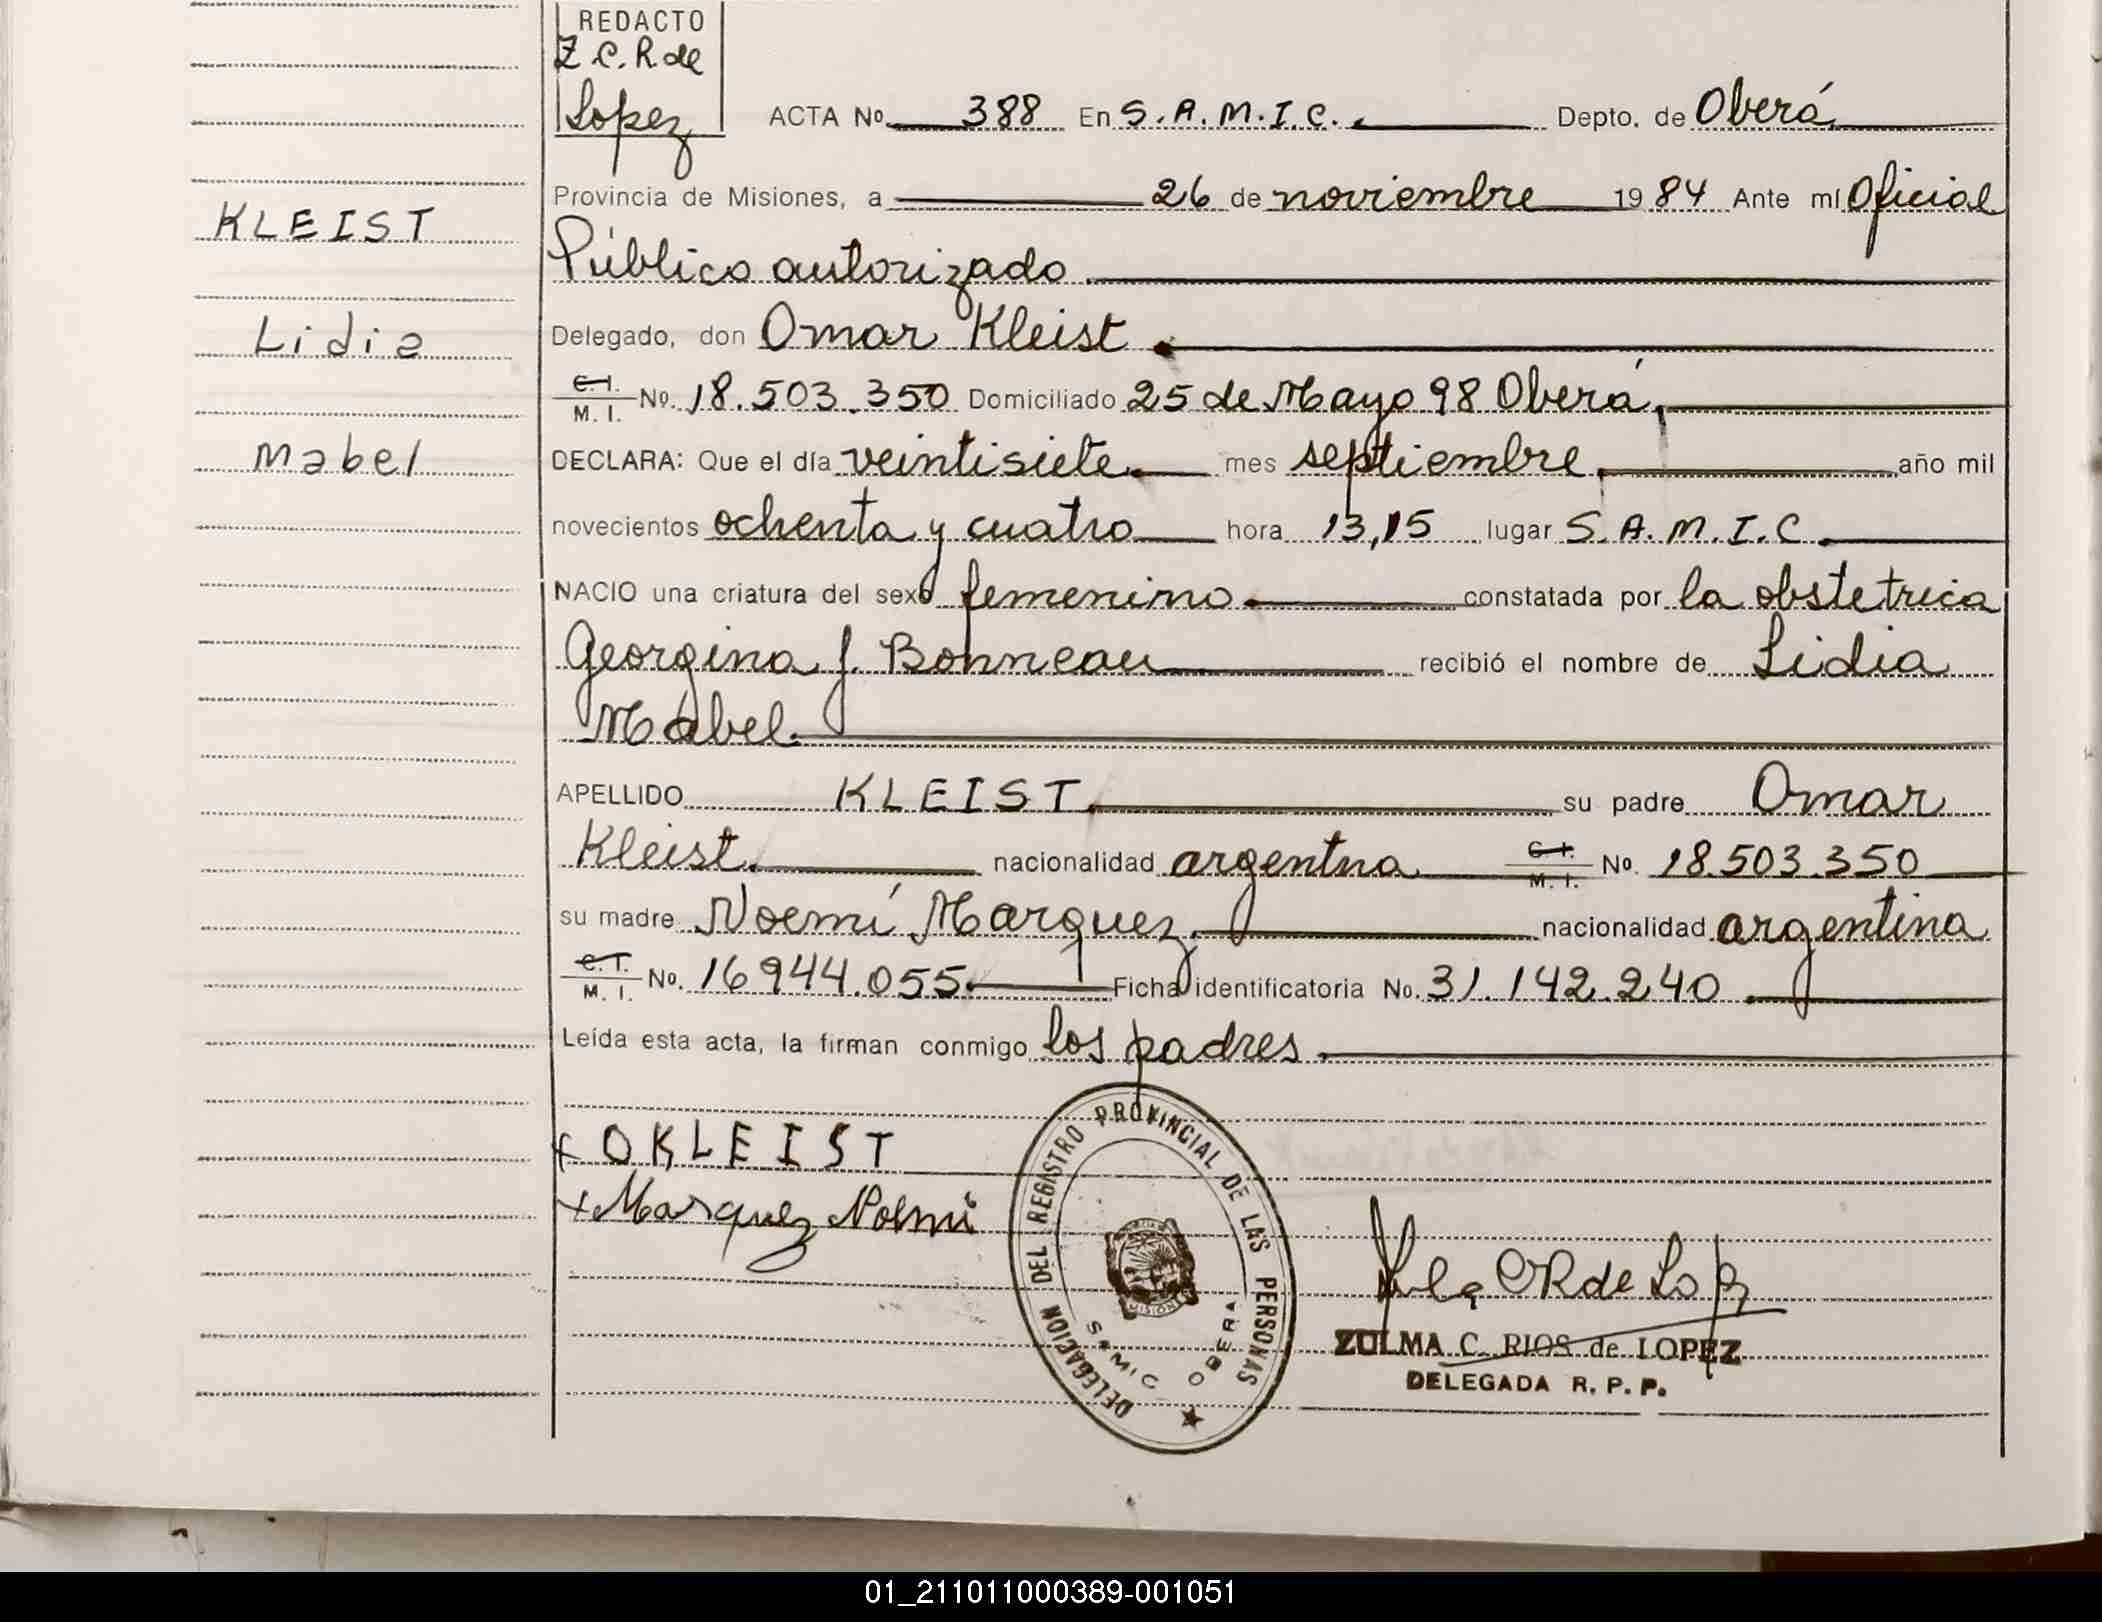 REDACTO
Z. C. R. de
Lopez
ACTA No 388 En S.A.M.I.C. Depto. de Oberá
Provincia de Misiones, a 26 de noviembre 1984 Ante mí Oficial
Público autorizado
Delegado, don Omar Kleist
C.I. M.I. No. 18.503.350 Domiciliado 25 de Mayo 98 Oberá
DECLARA: Que el día veintisiete mes septiembre año mil
novecientos ochenta y cuatro hora 13,15 lugar S.A.M.I.C.
NACIO una criatura del sexo femenino constatada por la obstetrica
Georgina J. Bonneau recibió el nombre de Lidia
Mabel.
APELLIDO KLEIST su padre Omar
Kleist nacionalidad argentna C.I. M.I. No. 18.503.350
su madre Noemí Marquez nacionalidad argentina
C.I. M.I. No. 16944.055 Ficha identificatoria No. 31.142.240
Leída esta acta, la firman conmigo los padres
KLEIST
Lidia
Mabel
+ OKLEIST
+ Marquez Noemi
DELEGACION DEL REGISTRO PROVINCIAL DE LAS PERSONAS
MISIONES
SAMIC OBERA
Zulma C R de Lopez
ZULMA C. RIOS de LOPEZ
DELEGADA R. P. P.
01_211011000389-001051